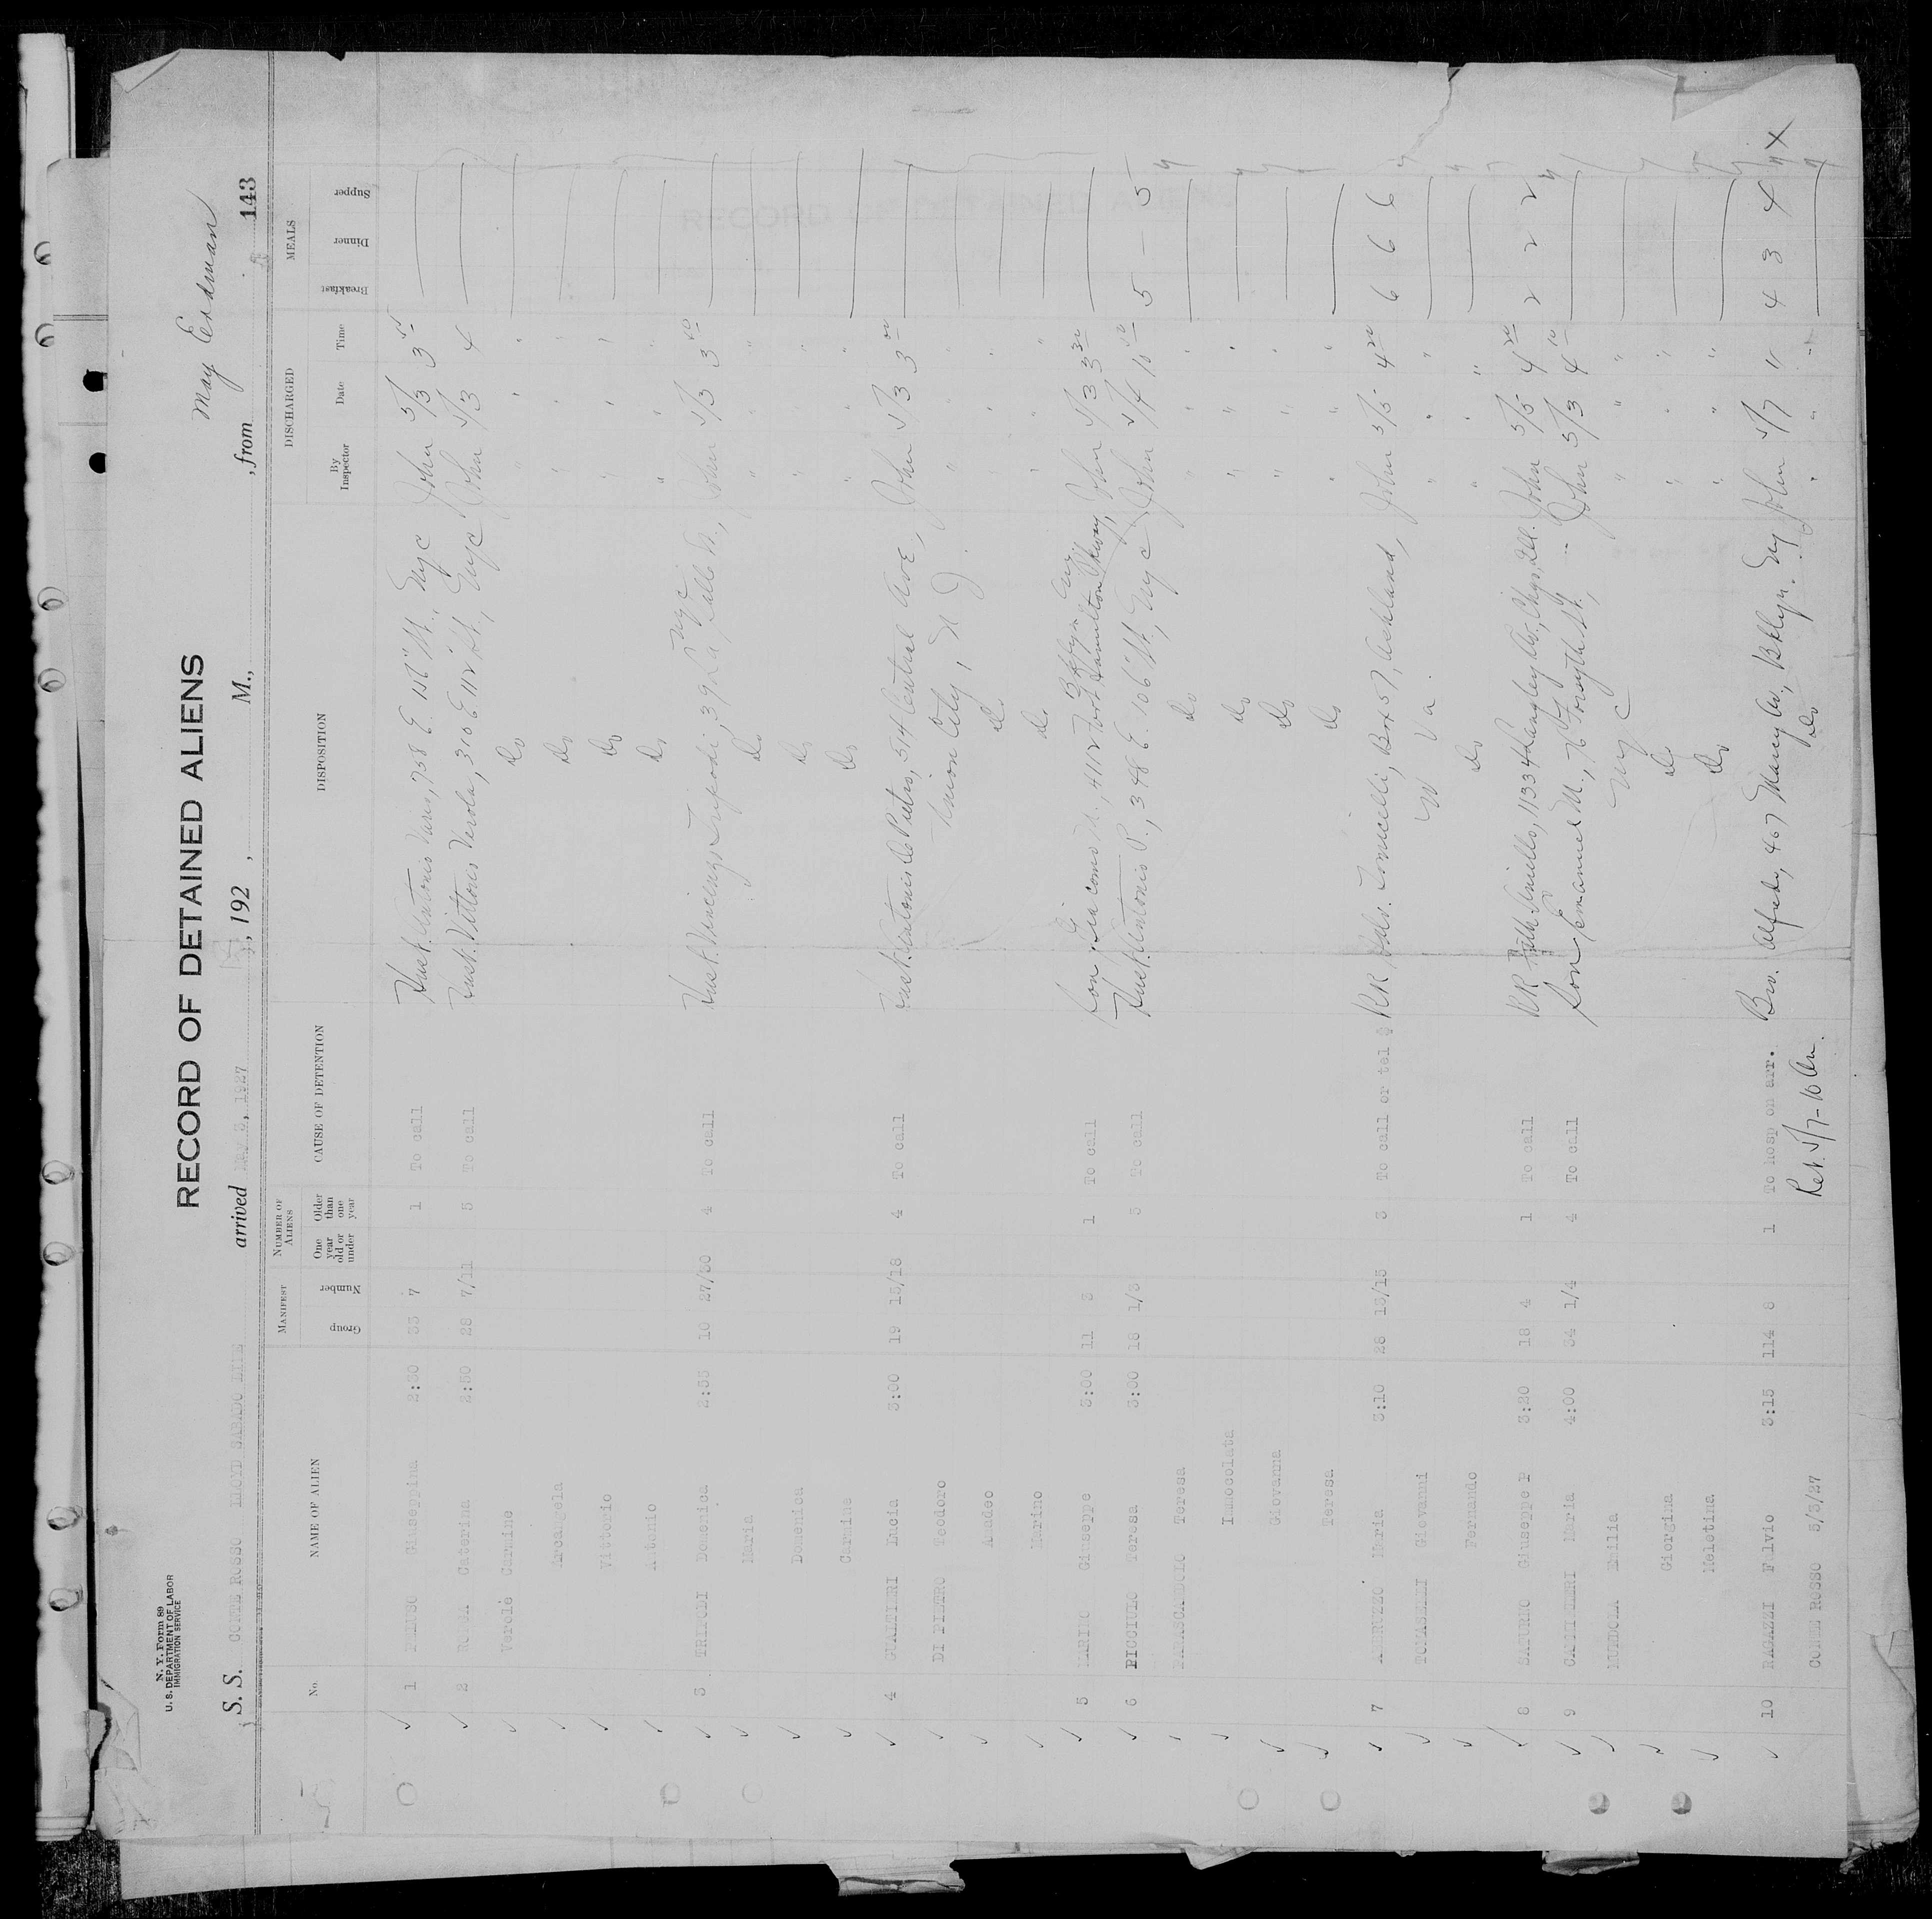 N. Y. Form 89
U. S. DEPARTMENT OF LABOR
IMMIGRATION SERVICE
RECORD OF DETAINED ALIENS
May Erdman
S. S. CONTE ROSSO LLOYD SABAUDO LINE arrived MAY 3, 1927, 192 , M., from 143
No. NAME OF ALIEN MANIFEST NUMBER OF ALIENS CAUSE OF DETENTION DISPOSITION DISCHARGED MEALS
Group Number One year old or under Older than one year By Inspector Date Time Breakfast Dinner Supper
1 Giuseppina 2:30 33 7 1 To call Husb. Antonio 758 E. St., NYC John 5/3
2 Caterina 2:50 28 7/11 5 To call Husb. Vittorio Verola, 310 E 112" St., NYC John 5/3 4
Verole Carmine " " " Do
Arcangela Do " " "
Vittorio Do " " "
Antonio Do " " "
3 TRIPODI Domenica 2:55 10 27/30 4 To call Husb. Vincenzo Tripodi, 39 La Salle St., NYC John 5/3 3 50
Maria Do " " "
Domenica Do " " "
Carmine Do " " "
4 GUALTIERI Lucia 3:00 19 15/18 4 To call Husb. Antonio Di Pietro, 514 Central Ave, John 5/3 3
DI PIETRO Teodoro Union City, N J. " " "
Amadeo Do " " "
Marino Do " " "
5 MARINO Giuseppe 3:00 11 3 1 To call Son, Giacomo M., 4112 Fort Hamilton Pkway, Bklyn NY John 5/3 3 30
6 PICCIULO Teresa 3:00 18 1/5 5 To call Husb. Antonio P., 348 E. 106" St, NYC John 5/4 10 5 – 5
Teresa Do " " "
Immocolata Do " " "
Giovanna Do " " "
Teresa Do " " "
7 Maria 3:10 28 13/15 3 To call or tel $ RR Box 57, Ashland, John 5/5 4 6 6 6
TOMASELLI Giovanni W Va. " " "
Fernando Do " " "
8 SATURNO Giuseppe P 3:20 18 4 1 To call RR 11334 Langley Av., Chgo, Ill. John 5/5 4 2 2 2
9 Maria 4:00 34 1/4 4 To call Son Emanuel M., 76 Forsythe St., John 5/3 4
Emilia NYC " " "
Giorgina Do " " "
Meletina Do " " "
10 RAGAZZI Fulvio 3:15 114 8 1 To hosp on arr. Bro. Alfredo, 467 Marcy Av., Bklyn. NY John 5/7 11 4 3 4 X
CONTE ROSSO 5/3/27 Rel. 5/7 - 10 Am. Do " " "